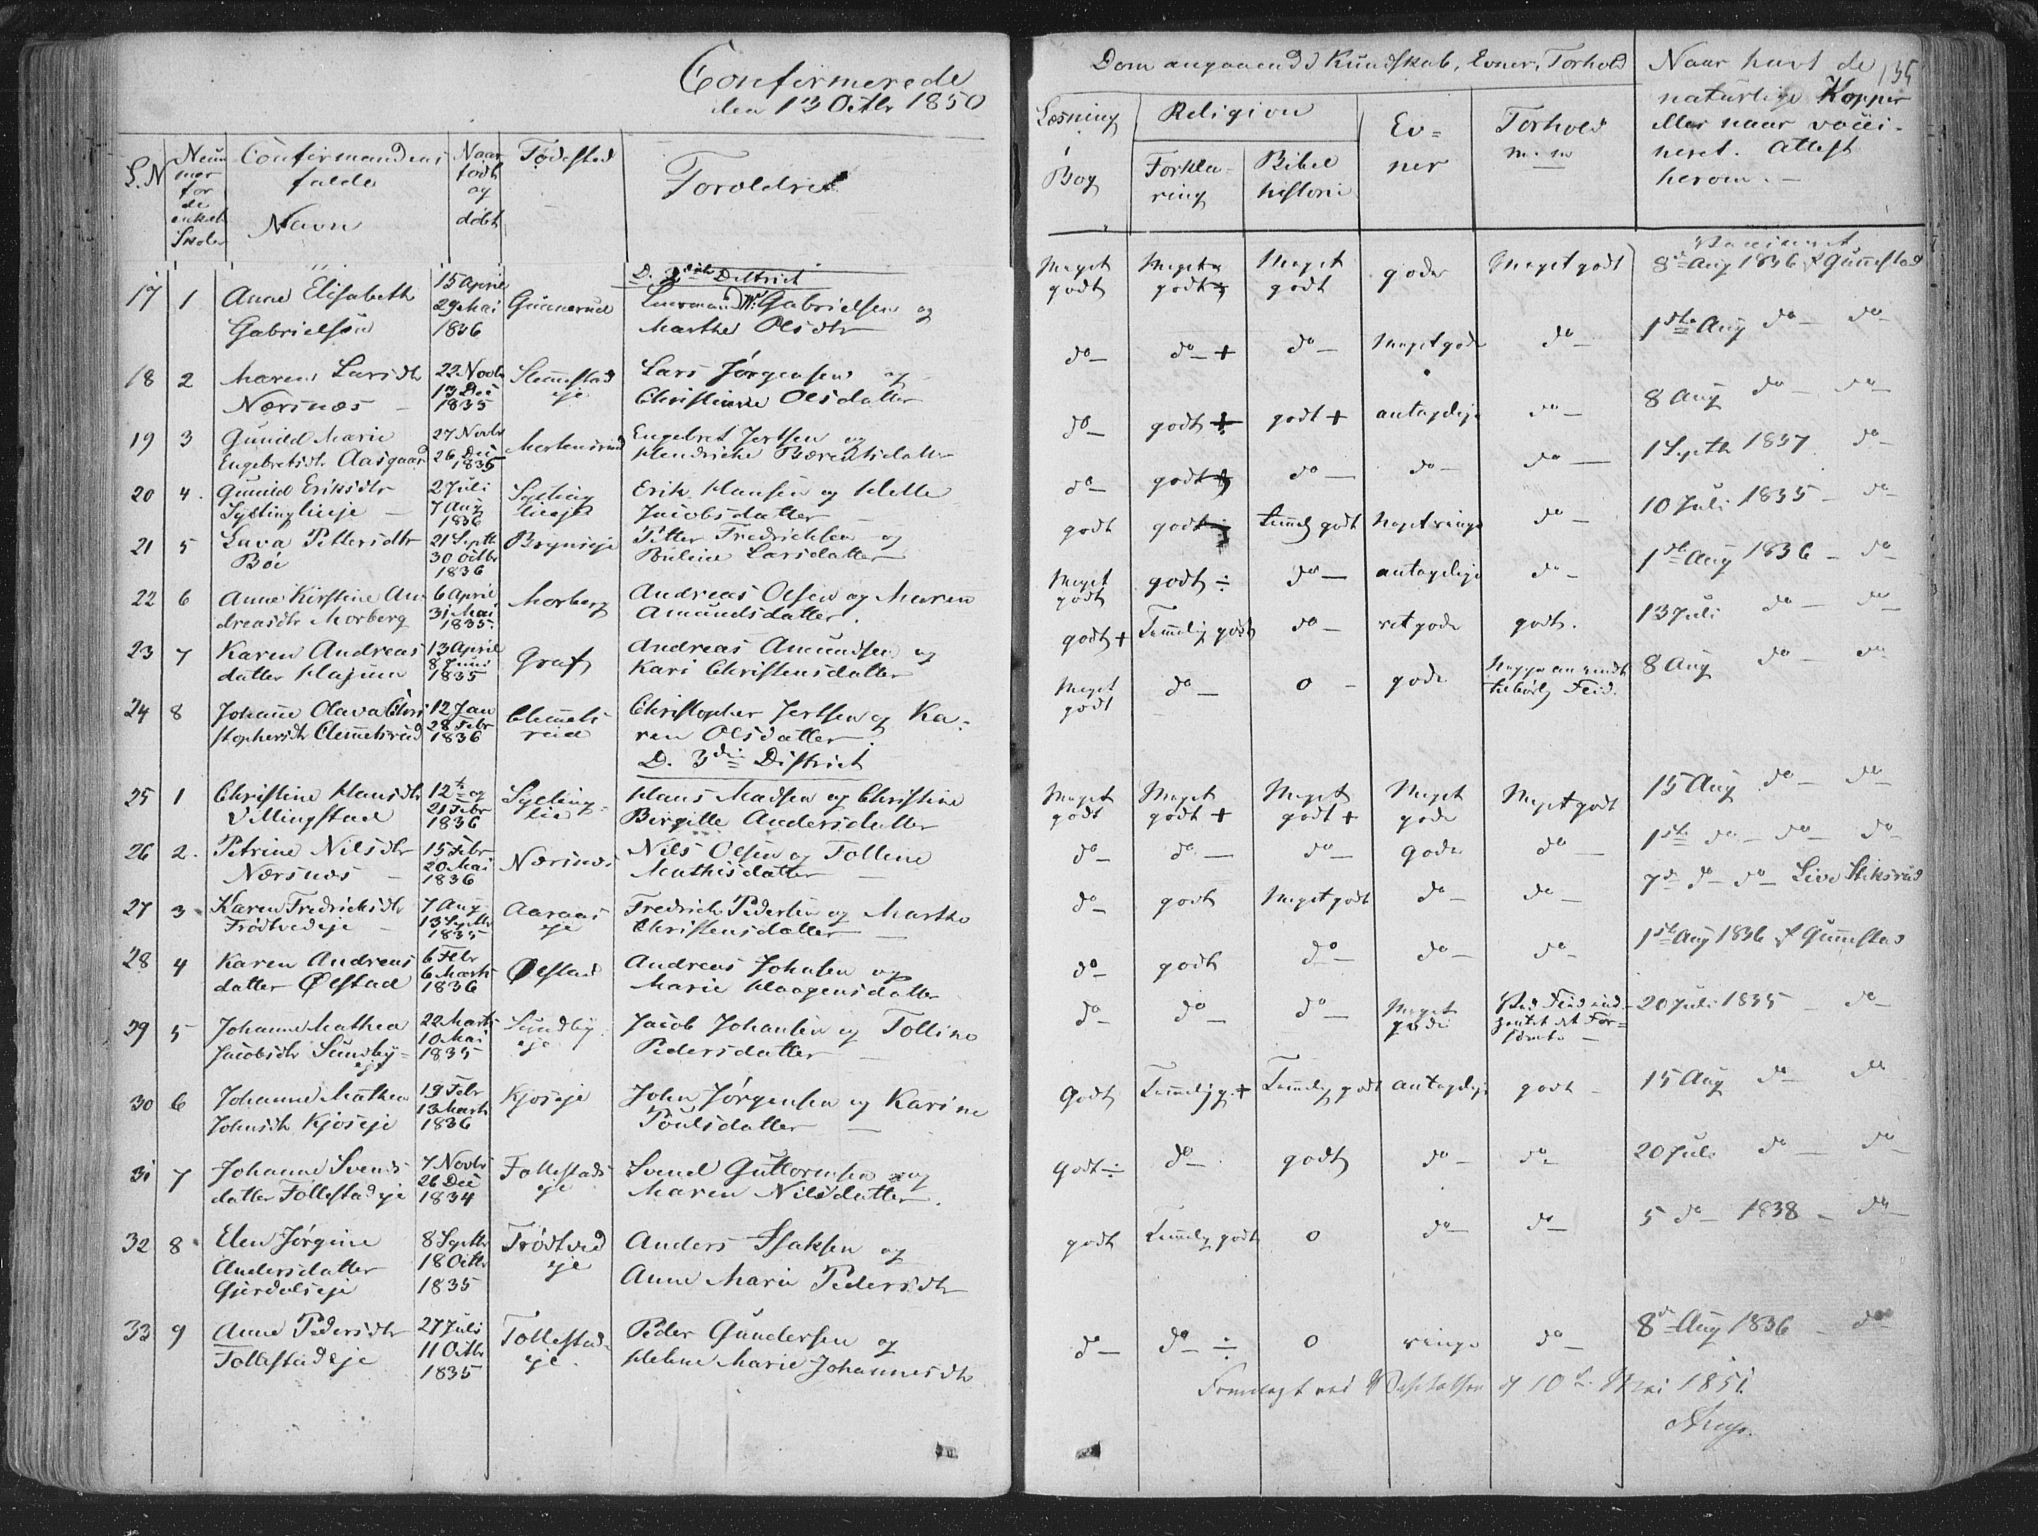 Confirmerede
den 13 Octbr 1850
L.N
Num
mer
for
de
enkelt
Skoler
Confirmandens
fulde
Navn
Naar
født
og
døbt
Fødested
Forældre
D. 2det District
17 1 Anne Elisabeth
Gabrielsen
15 April
29 Mai
1836
Gunnerud
Gabrielsen og
Marthe Olsdtr
18 2 Maren Larsdtr
Nærsnæs –
22 Novbr
13 Dec
1835
Slemmestad
eje
Lars Jørgensen og
Christiane Olsdatter
19 3 Gunild Marie
Engebretsdtr Aasgaard
27 Novbr
26 Dec
1835
Mortensrud
Engebret Jertsen og
Hendricke Bærentsdatter
20 4. Gunild Eriksdtr
Syltinglieje –
2 Juli
7 Aug
1836
Sylting
lieeje
Erik Hansen og Helle
Jacobsdatter –
21 5 Lava Pettersdtr
Böi
21 Septbr
30 Octbr
1836
Bøynseje
Petter Fredrichsen og
Puline Larsdatter
22 6 Anne Kirstine An
dreasdtr Morberg
6 April
31 Mai
1835.
Morberg
Andreas Olsen og Maren
Amundsdatter.
23 7 Karen Andreas
datter Hajum
13 April
8 Juni
1835
Graf
Andreas Amundsen og
Kari Christensdatter
24 8 Johanne Olava Chri
stophersdtr Clemmetsrud
12 Jan
28 Febr
1836
Clemmets
rud
Christopher Jertsen og Ka-
ren Olsdatter.
D. 3die District
25 1 Christine Hansdtr
Villingstad
21 Febr
1836
Sylting-
lie
Hans Madsen og Christine
Birgitte Andersdatter
26 2. Petrine Nilsdtr
Nærsnæs –
15 Febr
20 Mai
1836
Nærsnæs
Nils Olsen og Tolline
Mathisdatter –
27 3 Karen Fredricksdtr
Frødtvedeje –
7 Aug
13 Septbr
1835
Aaraas
eje
Fredrich Pedersen og Marthe
Christensdatter –
28 4 Karen Andreas
datter Ølstad
6 Febr
6 Marts
1836
Ølstad
Andreas Johnsen og
Marie Haagensdatter
29 5 Johanne Mathea
Jacobsdtr Sundby-
eje
22 Marts
10 Mai
1835
Sundby
eje
Jacob Johansen og Tolline
Pedersdatter –
30 6 Johanne Mathea
Johnsdtr Kjøseje
19 Febr
13 Marts
1836
Kjøseje
John Jørgensen og Karine
Poulsdatter –
31 7 Johanne Svends
datter Follestadeje
7 Novbr
26 Dec
1834
Follestads
eje
Svend Guttormsen og
Maren Nilsdatter.
32 8 Elen Jørgine
Andersdatter
Gjerdalseje
8 Septbr
18 Octbr
1835
Frødtved
eje
Anders Isaksen og
Anne Marie Pedersdtr
33 9 Anne Pedersdtr
Follestadeje
27 Juli
11 Octbr
1835
Follestad
eje
Peder Gundersen og
Helene Marie Johannesdtr
Dom angaaende Kundskab, Evner, Forhold
135
Læsning
i
Bog
Religion
Forkla-
ring
Bibel
historie
Ev-
ner
Forhold
m. m
Naar havt de
naturlige Kopper
eller naar vacci-
neret. Attest
herom. –
Vaccineret
Meget
godt
Meget
godt
Meget
godt
gode
Meget godt
8de Aug 1836 Gunnestad
do – do – + do – Meget gode do –
1ste Aug do – do –
do – godt + godt + antagelige do –
8 Aug do – do –
do – godt do – do – do –
1 Septbr 1837 do –
godt godt Temmelig godt Meget ringe do –
10 Juli 1835 – do –
Meget
godt
godt ÷ do – antagelige do –
1ste Aug 1836 – do –
godt + Temmelig godt do – ret gode godt.
13 Juli do – do –
Meget
godt
do – 0 – gode
8 Aug do – do –
Meget
godt
Meget
godt +
Meget
godt +
Meget
gode
Meget godt
15 Aug do – do –
do – do – do – gode do –
1ste do – do – do –
do – godt Meget godt do – do –
7de do – do –
do – godt do – do – do –
1ste Aug 1836 Gunnestad
do – do – do – Meget
gode
20 Juli 1835 – do –
Godt Temmelig g. + Temmelig godt antagelige godt –
15 Aug do – do –
Godt ÷ do – godt do – do –
20 Juli do – do
godt Temmelig godt 0 do – do –
5 do – 1838 – do –
do – do – ÷ 0 ringe do –
8de Aug 1836 – do
Fremlagt ved Visitatsen d 10de Mai 1851